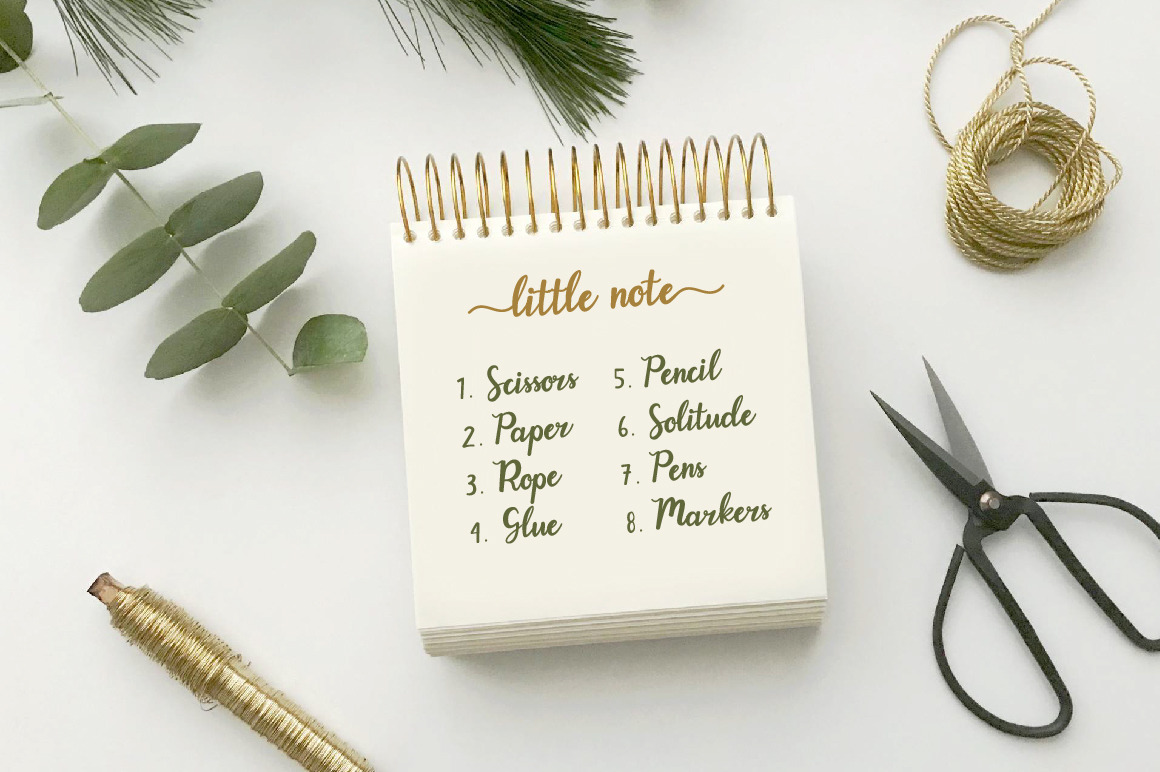 little note
1. Scissors
2. Paper
3. Rope
4. Glue
5. Pencil
6. Solitude
7. Pens
8. Markers